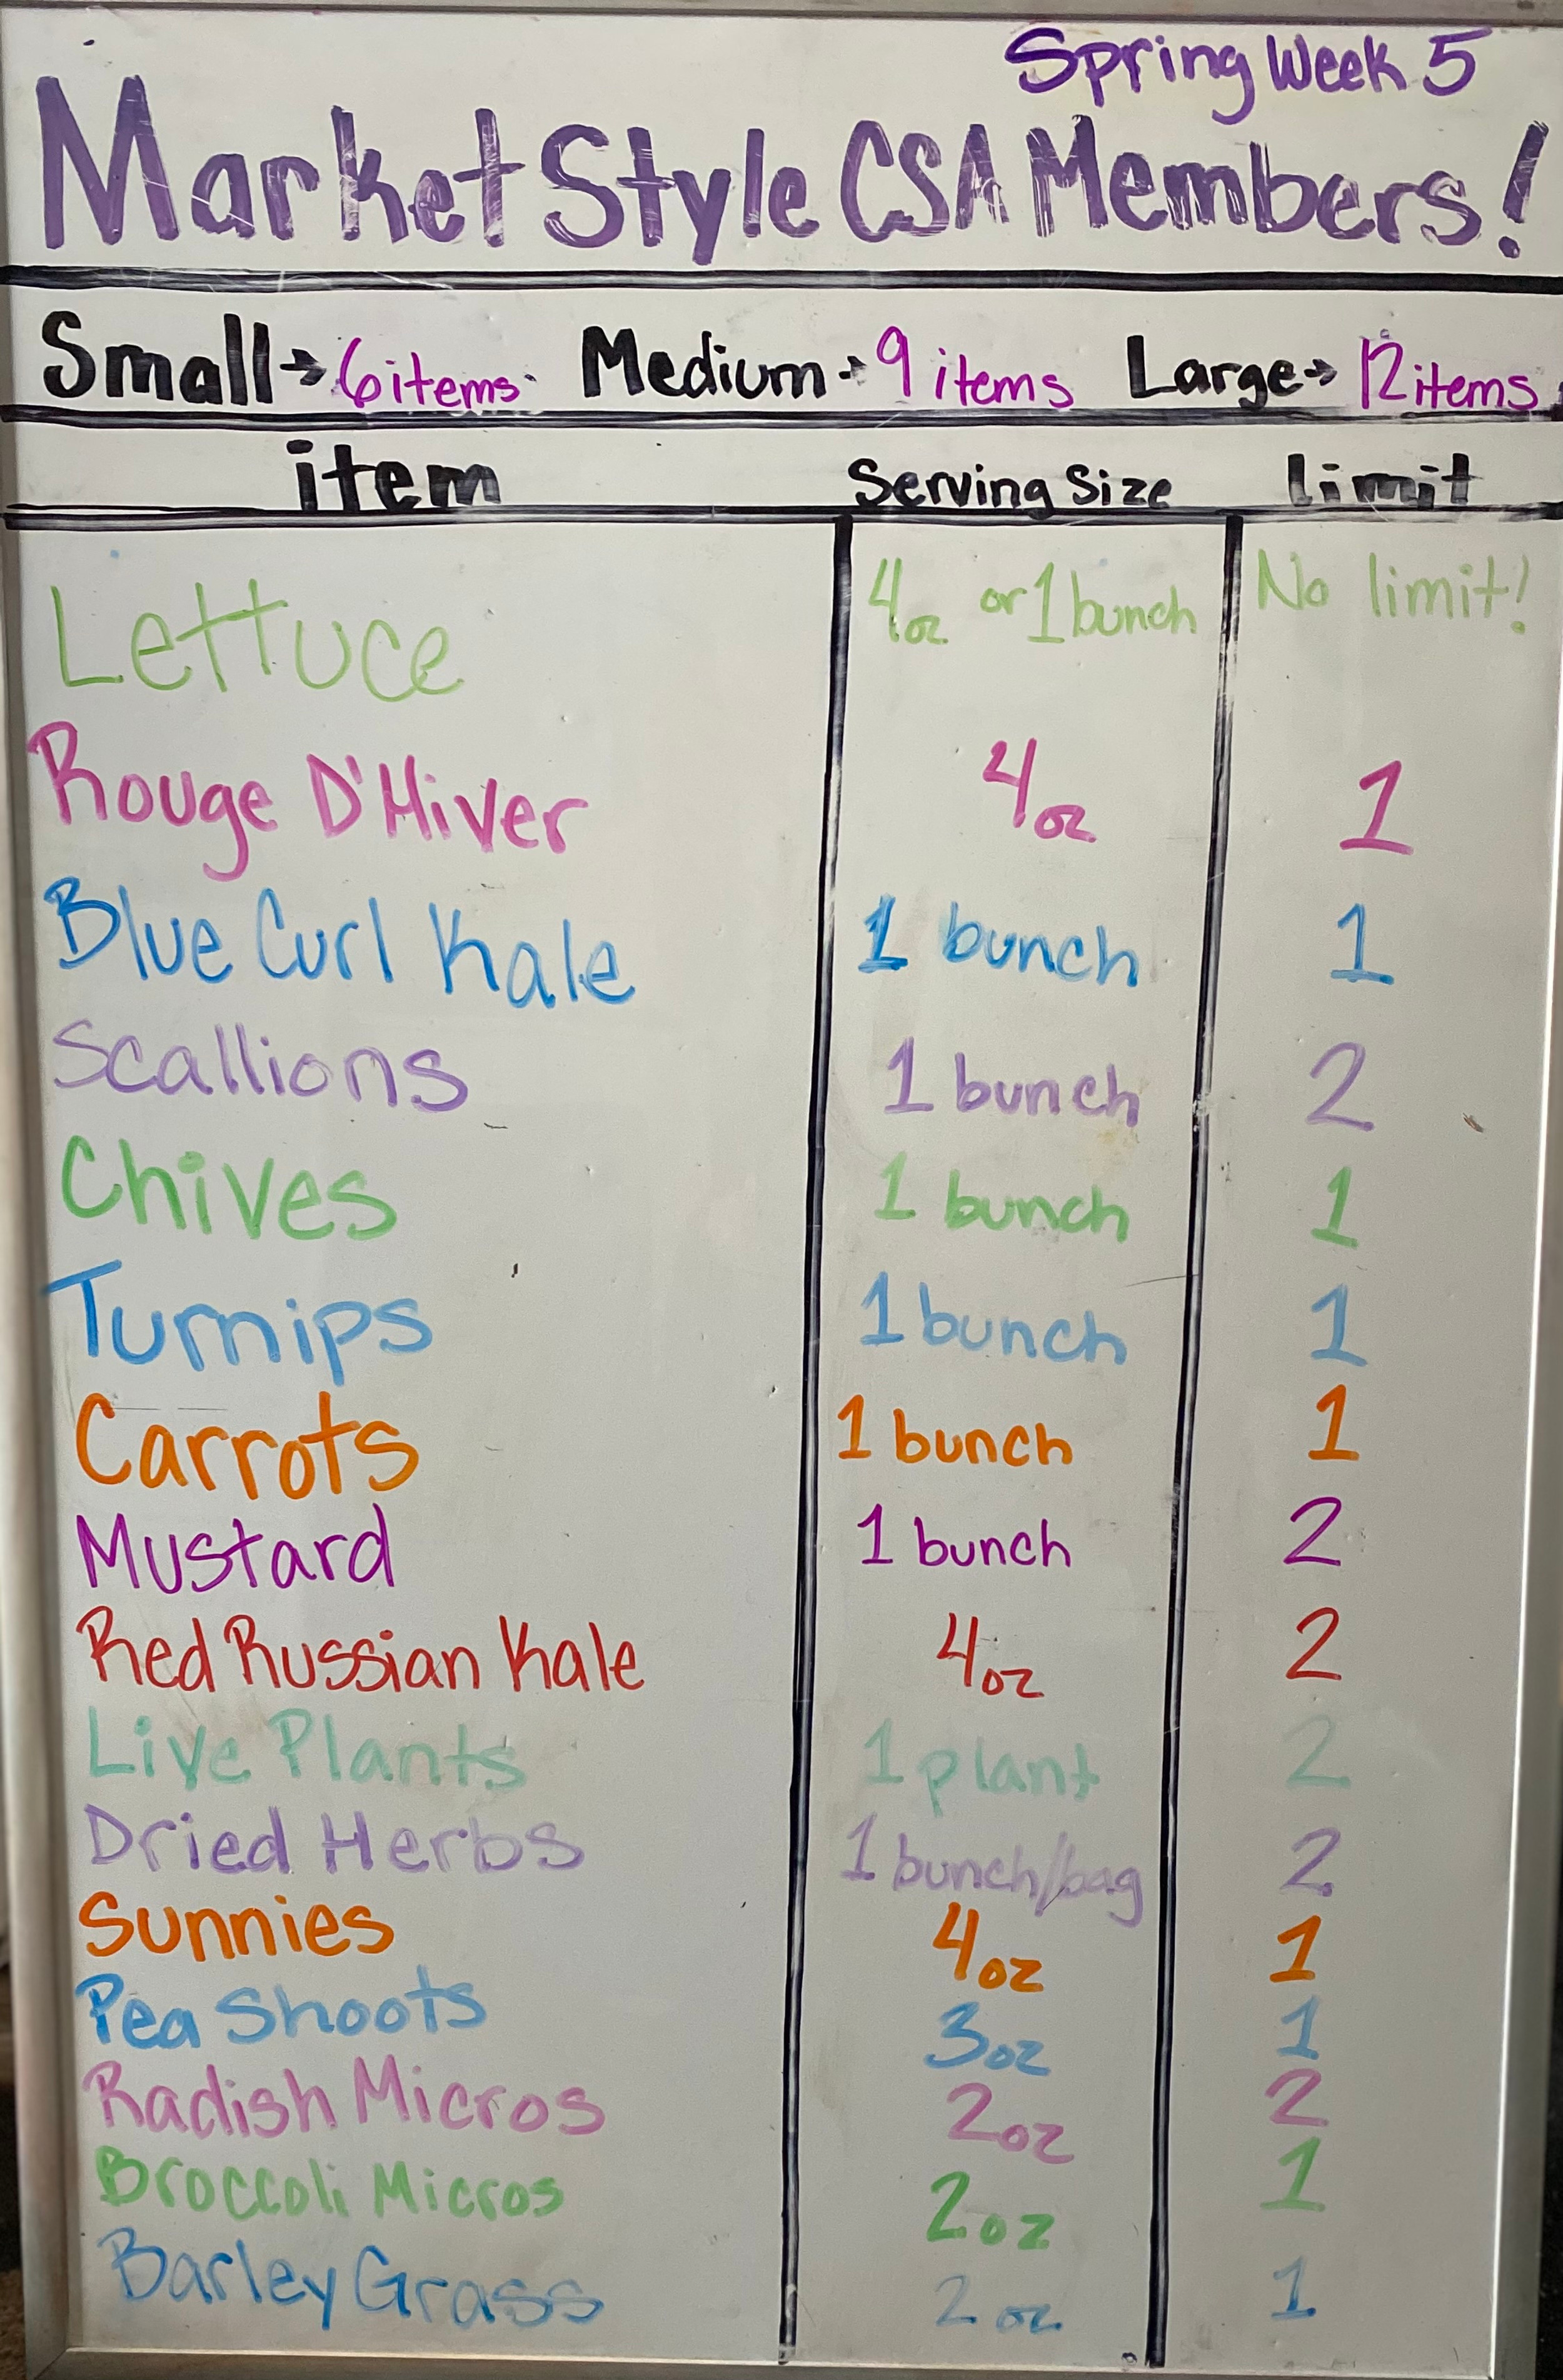 Spring Week 5
Market Style CSA Members!
Small→6 items Medium→9 items Large→12 items
item Serving Size limit
Lettuce 4oz or 1 bunch No limit!
Rouge D'Hiver 4oz 1
Blue Curl Kale 1 bunch 1
Scallions 1 bunch 2
Chives 1 bunch 1
Turnips 1 bunch 1
Carrots 1 bunch 1
Mustard 1 bunch 2
Red Russian Kale 4oz 2
Live Plants 1 plant 2
Dried Herbs 1 bunch/bag 2
Sunnies 4oz 1
Pea Shoots 3oz 1
Radish Micros 2oz 2
Broccoli Micros 2oz 1
Barley Grass 2oz 1